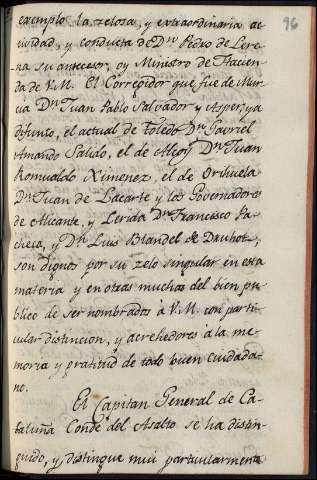 96
exemplo la zelosa, y extraordinaria ac
tividad, y conducta de Dn. Pedro de Lere-
na su antecesor, oy Ministro de Hacien
da de V.M. El Corregidor que fue de Mur
cia Dn. Juan Pablo Salvador y Asper, ya
difunto, el actual de Toledo Dn. Gavriel
Amando Salido, el de Alcoy Dn. Juan
Romualdo Ximenez, el de Orihuela
Dn. Juan de Lacarte y los Governadores
de Alicante, y Lerida Dn. Francisco Pa-
checo, y Dn. Luis Blandel de Druhot,
son dignos por su zelo singular en esta
materia y en otras muchas del bien pu-
blico de ser nombrados à V.M. con parti-
cular distincion, y acrehedores à la me-
moria y gratitud de todo buen ciudada-
no.
El Capitan General de Ca-
taluña Conde del Asalto se ha distin-
guido, y distingue mui particularmente